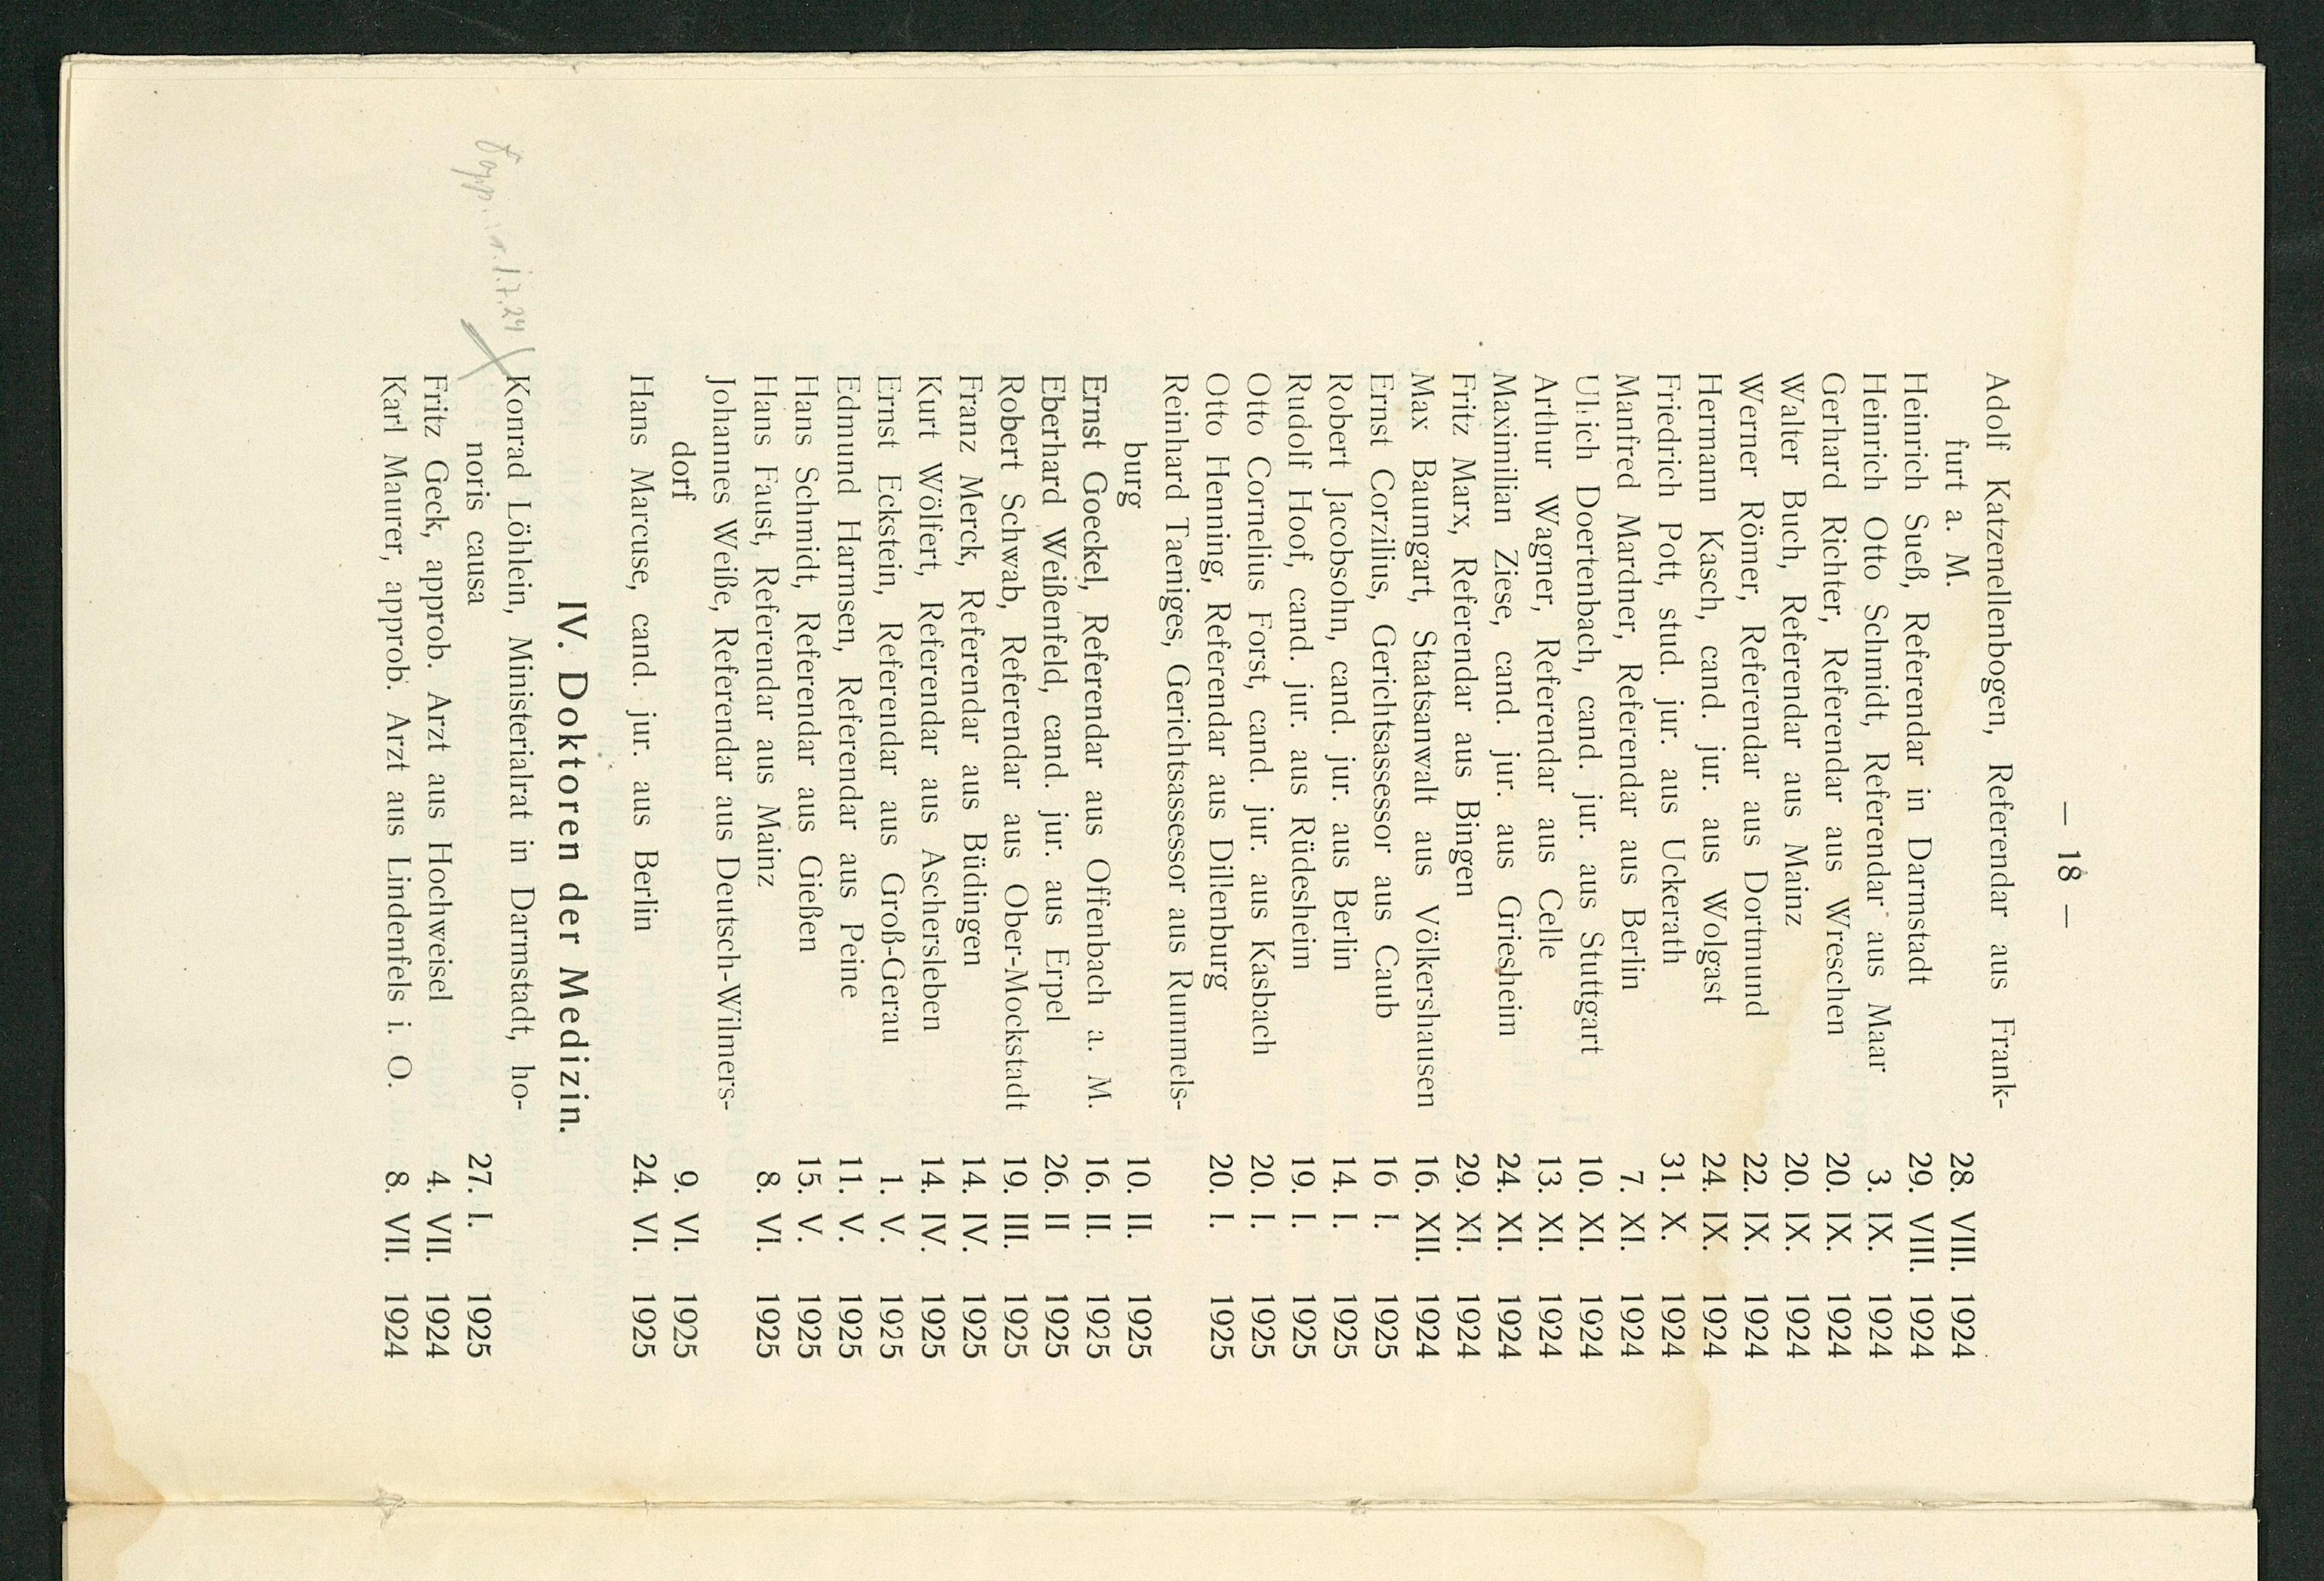 — 18 —
Adolf Katzenellenbogen, Referendar aus Frank-
furt a. M. 28. VIII. 1924
Heinrich Sueß, Referendar in Darmstadt 29. VIII. 1924
Heinrich Otto Schmidt, Referendar aus Maar 3. IX. 1924
Gerhard Richter, Referendar aus Wreschen 20. IX. 1924
Walter Buch, Referendar aus Mainz 20. IX. 1924
Werner Römer, Referendar aus Dortmund 22. IX. 1924
Hermann Kasch, cand. jur. aus Wolgast 24. IX. 1924
Friedrich Pott, stud. jur. aus Uckerath 31. X. 1924
Manfred Mardner, Referendar aus Berlin 7. XI. 1924
Ulrich Doertenbach, cand. jur. aus Stuttgart 10. XI. 1924
Arthur Wagner, Referendar aus Celle 13. XI. 1924
Maximilian Ziese, cand. jur. aus Griesheim 24. XI. 1924
Fritz Marx, Referendar aus Bingen 29. XI. 1924
Max Baumgart, Staatsanwalt aus Völkershausen 16. XII. 1924
Ernst Corzilius, Gerichtsassessor aus Caub 16 I. 1925
Robert Jacobsohn, cand. jur. aus Berlin 14. I. 1925
Rudolf Hoof, cand. jur. aus Rüdesheim 19. I. 1925
Otto Cornelius Forst, cand. jur. aus Kasbach 20. I. 1925
Otto Henning, Referendar aus Dillenburg 20. I. 1925
Reinhard Taeniges, Gerichtsassessor aus Rummels-
burg 10. II. 1925
Ernst Goeckel, Referendar aus Offenbach a. M. 16. II. 1925
Eberhard Weißenfeld, cand. jur. aus Erpel 26. II 1925
Robert Schwab, Referendar aus Ober-Mockstadt 19. III. 1925
Franz Merck, Referendar aus Büdingen 14. IV. 1925
Kurt Wölfert, Referendar aus Aschersleben 14. IV. 1925
Ernst Eckstein, Referendar aus Groß-Gerau 1. V. 1925
Edmund Harmsen, Referendar aus Peine 11. V. 1925
Hans Schmidt, Referendar aus Gießen 15. V. 1925
Hans Faust, Referendar aus Mainz 8. VI. 1925
Johannes Weiße, Referendar aus Deutsch-Wilmers-
dorf 9. VI. 1925
Hans Marcuse, cand. jur. aus Berlin 24. VI. 1925
IV. Doktoren der Medizin.
Konrad Löhlein, Ministerialrat in Darmstadt, ho-
noris causa 27. I. 1925
Fritz Geck, approb. Arzt aus Hochweisel 4. VII. 1924
Karl Maurer, approb. Arzt aus Lindenfels i. O. 8. VII. 1924